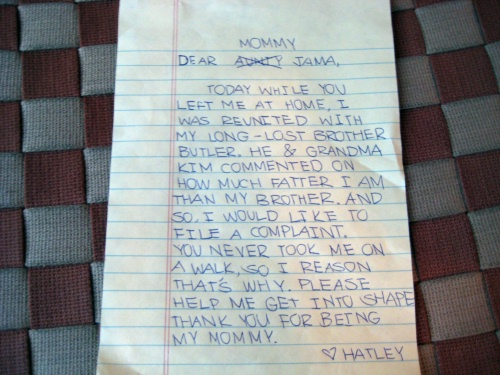 MOMMY
DEAR AUNTY JAMA,
TODAY WHILE YOU
LEFT ME AT HOME, I
WAS REUNITED WITH
MY LONG-LOST BROTHER
BUTLER. HE & GRANDMA
KIM COMMENTED ON
HOW MUCH FATTER I AM
THAN MY BROTHER. AND
SO, I WOULD LIKE TO
FILE A COMPLAINT.
YOU NEVER TOOK ME ON
A WALK, SO I REASON
THAT'S WHY. PLEASE
HELP ME GET INTO SHAPE
THANK YOU FOR BEING
MY MOMMY.
♡ HATLEY